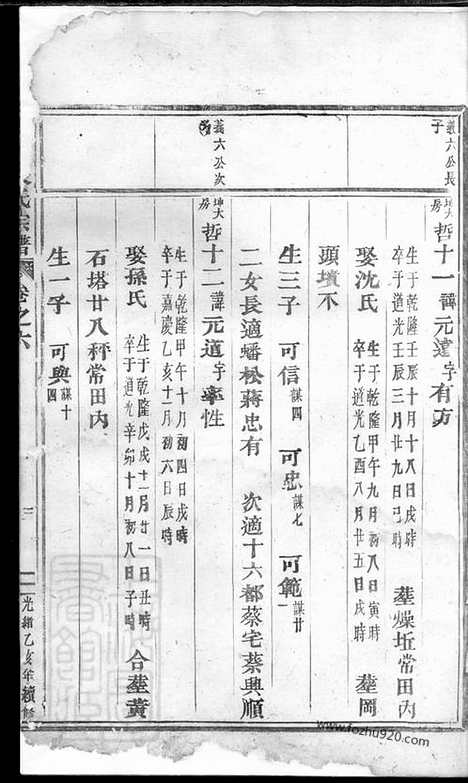 義六公長子
坤大房
哲十一 諱元達字有方
生于乾隆壬辰十月十八日戌時
卒于道光壬辰三月廿九日巳時
塟燥坵常田內
娶沈氏
生于乾隆甲午九月初八日寅時
卒于道光乙酉八月廿五日戌時
塟岡
頭墳不
生三子 可信謀四 可忠謀七 可範謀廿一
二女長適蟠松蔣忠有 次適十六都蔡宅蔡興順
義六公次子
坤大房
哲十二 諱元道字率性
生于乾隆甲午十月初四日戌時
卒于嘉慶乙亥十一月初六日辰時
娶孫氏
生于乾隆戊戌十一月廿一日丑時
卒于道光辛卯十月初八日子時
合塟黃
石塔廿八秤常田內
生一子 可興謀十四
氏宗譜
卷之六
三
光緒乙亥年續修
www.fozhu920.com